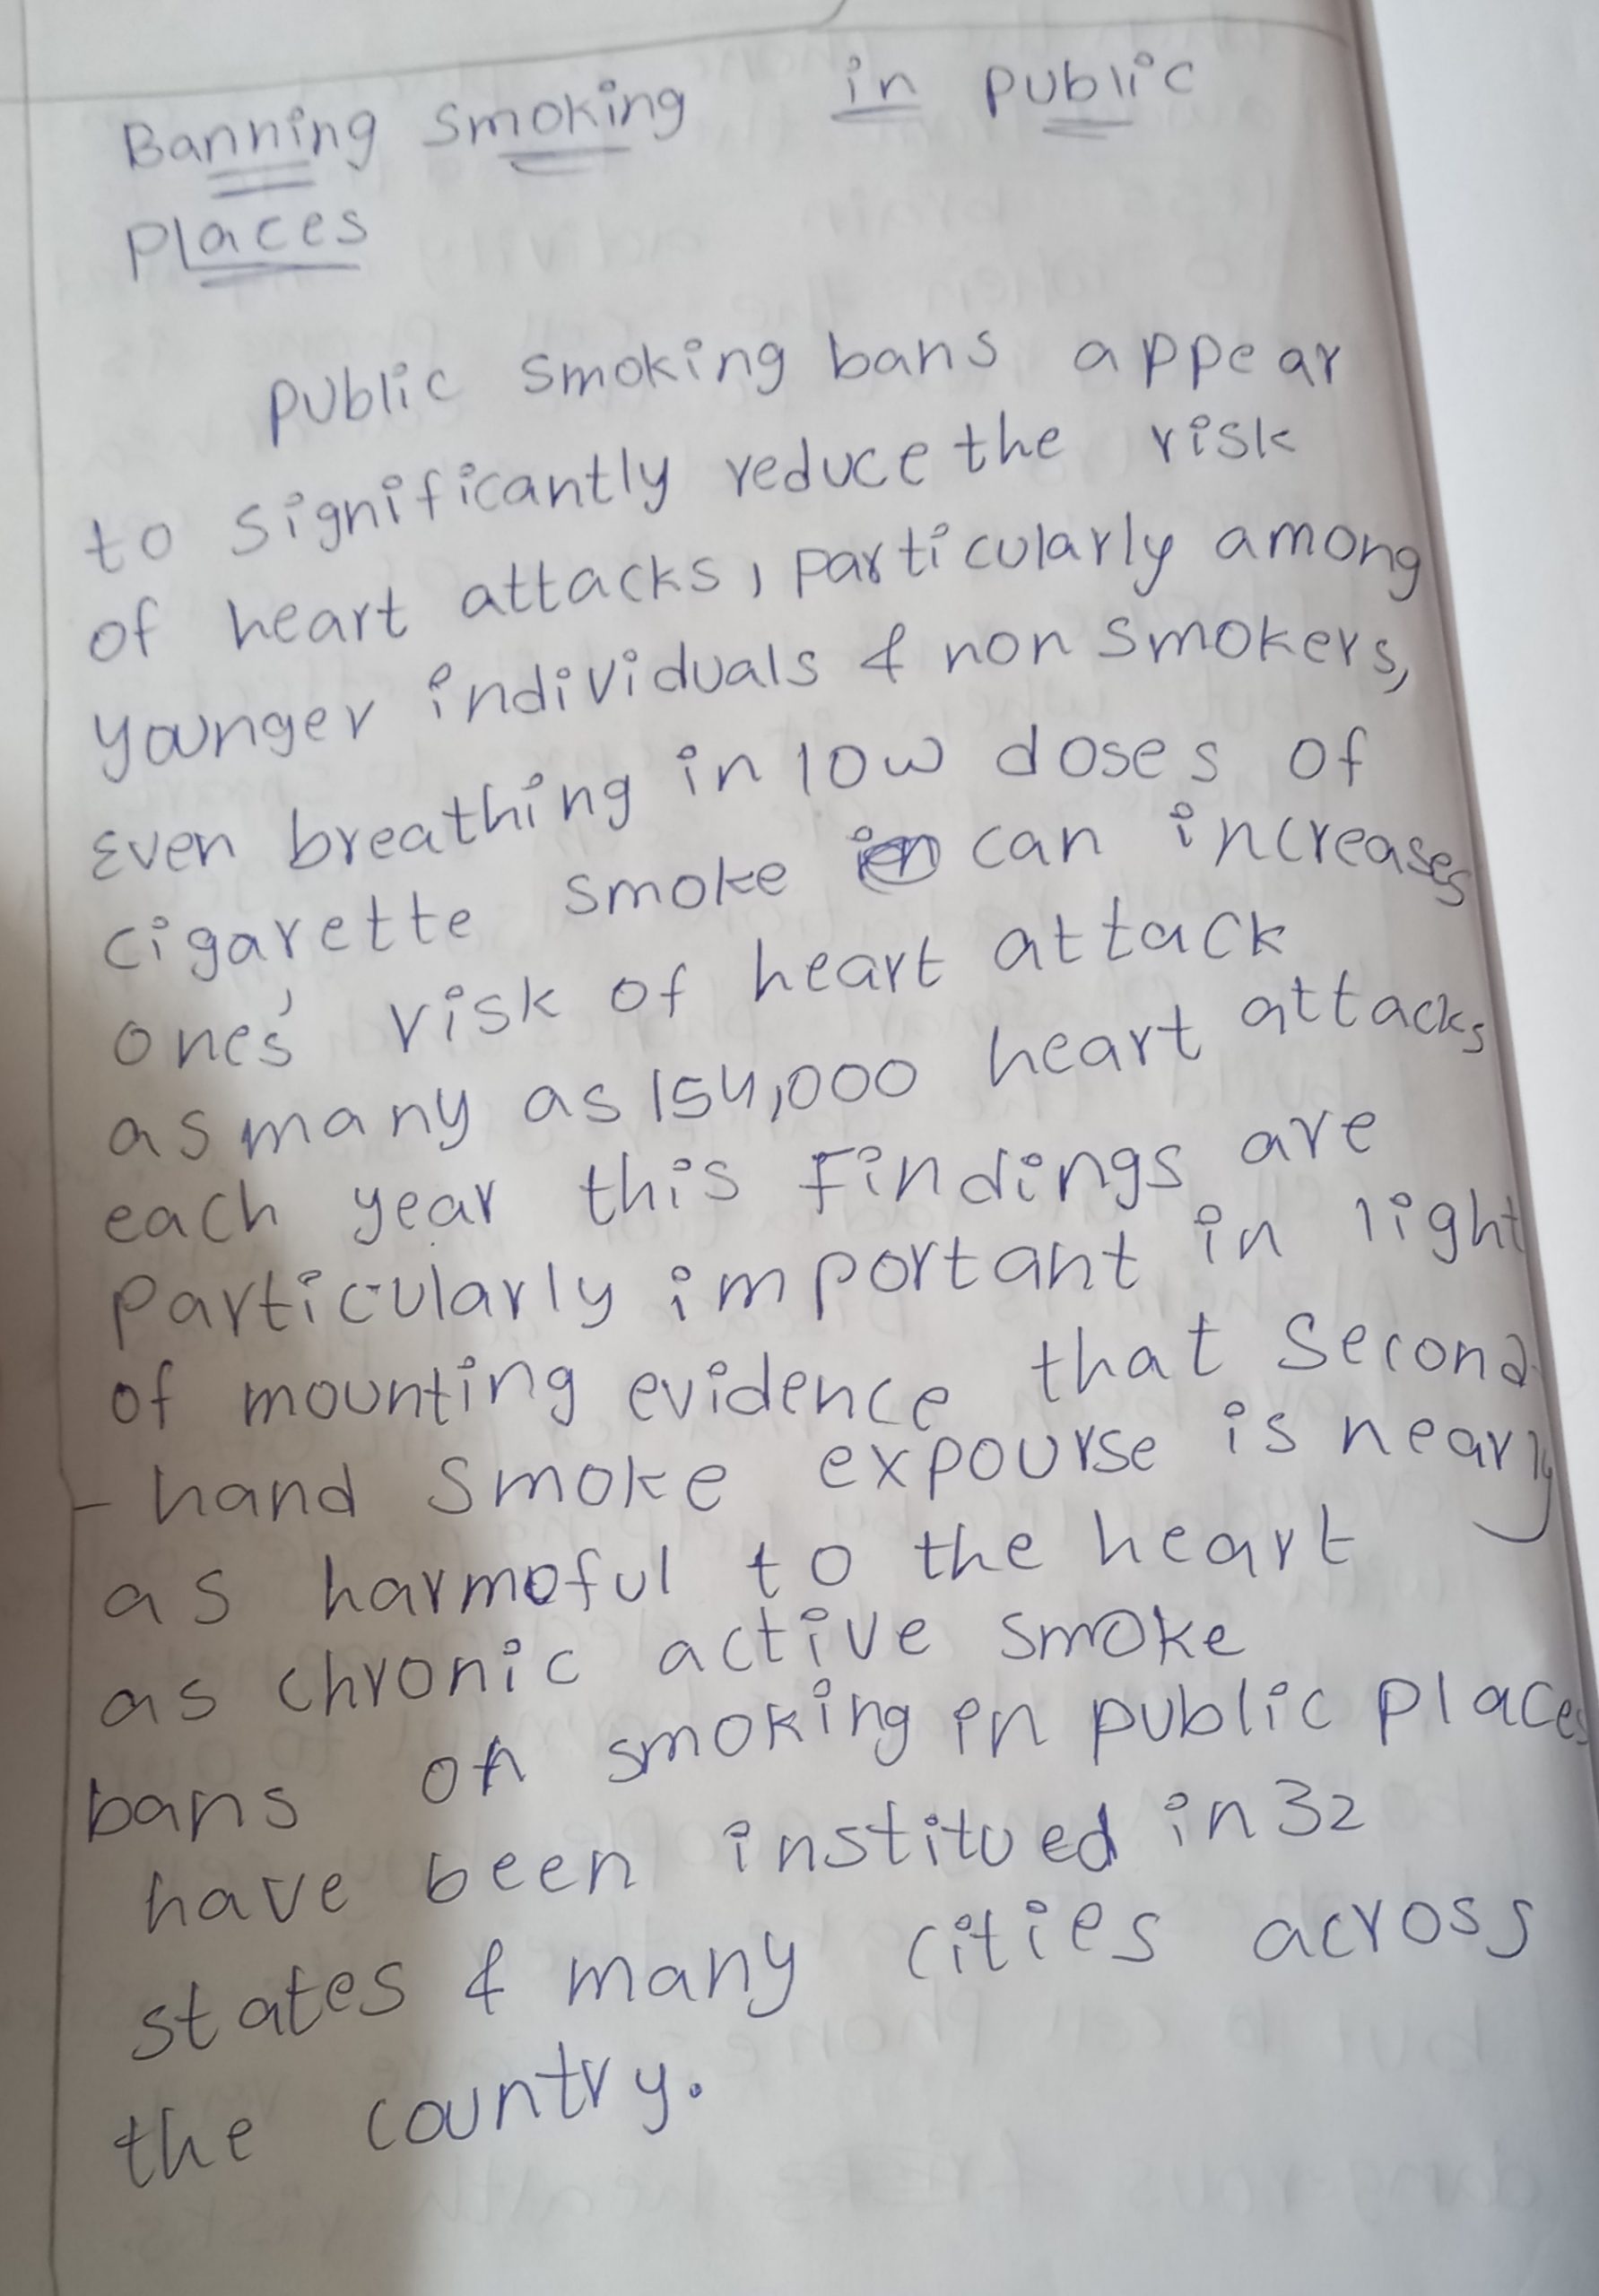 Banning Smoking in public
Places
public smoking bans appear
to significantly reduce the risk
of heart attacks, particularly among
younger individuals & non smokers,
Even breathing in low doses of
cigarette smoke can increases
ones' risk of heart attack
as many as 154,000 heart attacks
each year this Findings are
particularly important in light
of mounting evidence that second
- hand smoke expourse is nearly
as harmoful to the heart
as chronic active smoke
bans on smoking in public places
have been institued in 32
states & many cities across
the country.